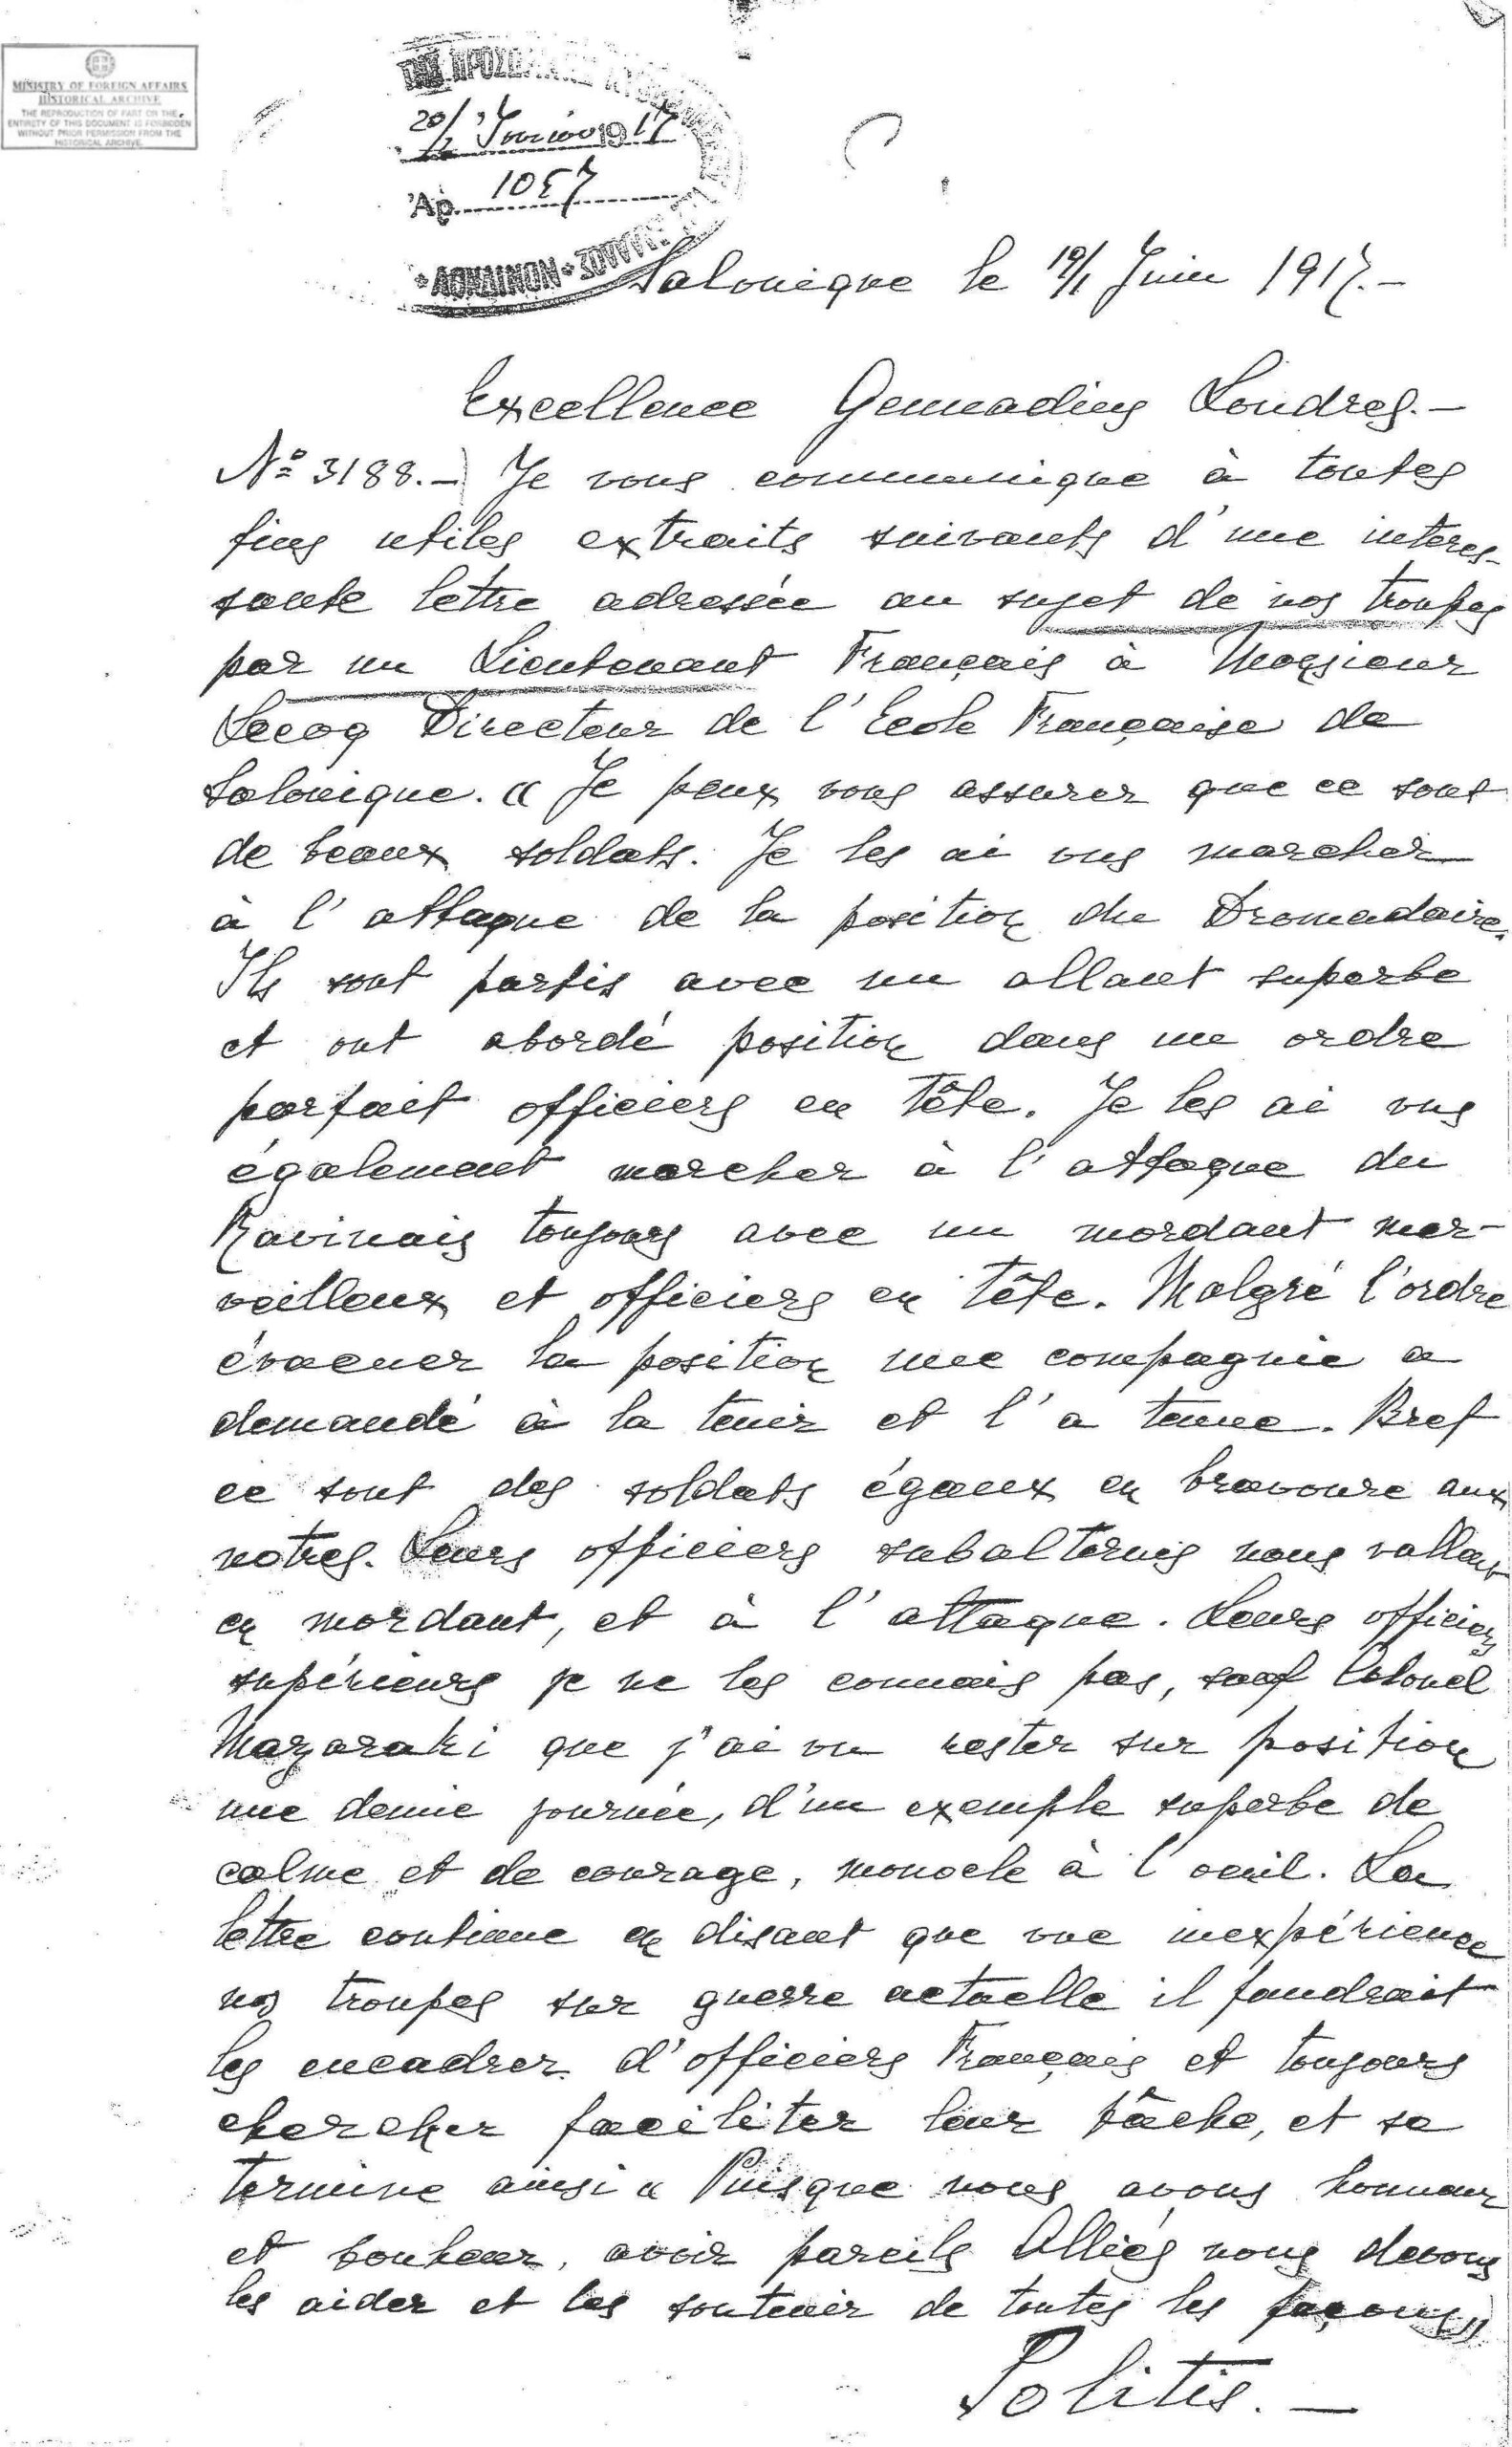 MINISTRY OF FOREIGN AFFAIRS
HISTORICAL ARCHIVE
THE REPRODUCTION OF PART OR THE
ENTIRETY OF THIS DOCUMENT IS FORBIDDEN
WITHOUT PRIOR PERMISSION FROM THE
HISTORICAL ARCHIVE.
20/2 Ἰουνίου 1917
Ἀρ. 1057
Salonique le 19/1 Juin 1917.-
Excellence Gennadius Londres.-
Nº 3188.- Je vous communique à toutes
fins utiles extraits suivants d'une interes-
sante lettre adressée au sujet de nos troupes
par un Lieutenant Français à Monsieur
Lecoq Directeur de l'Ecole Française de
Salonique. « Je peux vous assurer que ce sont
de beaux soldats. Je les ai vus marcher
à l'attaque de la position du Dromadaire.
Ils sont partis avec un allant superbe
et ont abordé position dans un ordre
parfait officiers en tête. Je les ai vus
également marcher à l'attaque du
Ravinais toujours avec un mordant mer-
veilleux et officiers en tête. Malgré l'ordre
évacuer la position une compagnie a
demandé à la tenir et l'a tenue. Bref
ce sont des soldats égaux en bravoure aux
notres. Leurs officiers subalternes nous vallent
en mordant, et à l'attaque. Leurs officiers
supérieurs je ne les connais pas, sauf Colonel
Mazaraki que j'ai vu rester sur position
une demie journée, d'un exemple superbe de
calme et de courage, monocle à l'oeuil. La
lettre continue en disant que vue inexpérience
nos troupes sur guerre actuelle il faudrait
les encadrer d'officiers Français et toujours
chercher faciliter leur tâche, et se
termine ainsi « Puisque nous avons honneur
et bonheur, avoir pareils Alliés nous devons
les aider et les soutenir de toutes les façons »
Politis.-